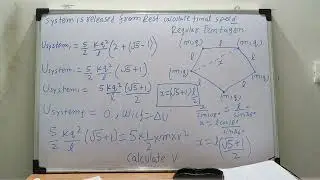 System is released from Rest calculate final speed
Regular Pentagon
Usystemi = 5/2 Kq²/l (2 + (√5-1))
Usystemi = 5/2 Kq²/l (√5+1)
Usystemi = 5/2 Kq²/l (√5+1)/2
Usystemf = 0, Wicf = -ΔU
5/2 Kq²/l (√5+1) = 5×1/2 ×m×v²
Calculate V
(m,q)
(m,q)
(m,q)
(m,q)
(m,q)
l
l
l
x
x = (√5+1) l/2
x/sin108° = l/sin36°
x = l (√5+1)/2